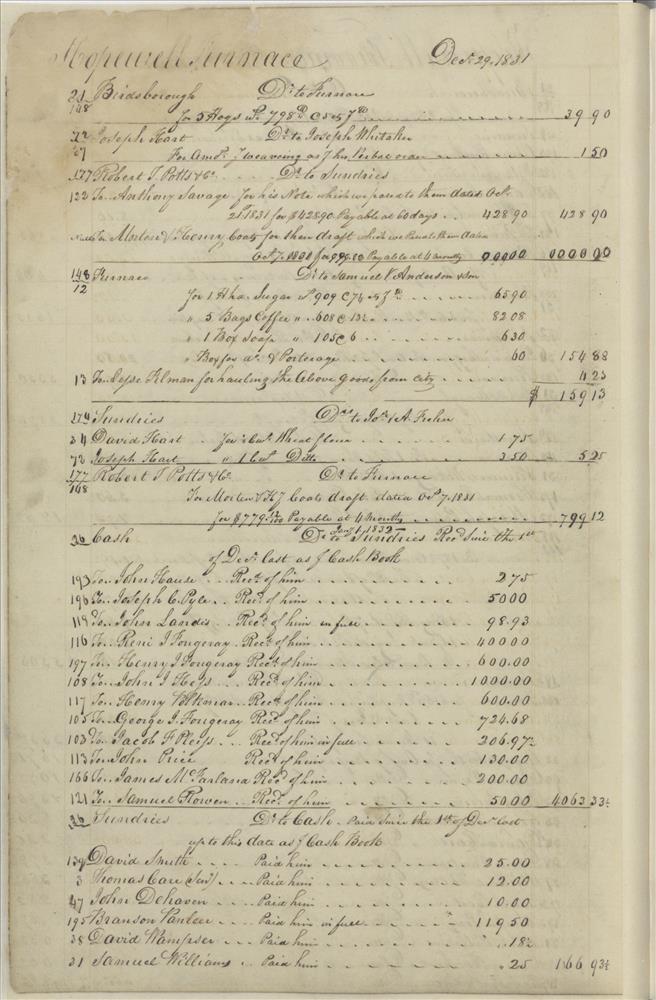 Hopewell Furnace Decr. 29. 1831
21 Birdsborough Dr. to Furnace
148 for 5 Hogs wt. 798 lb @ 5 as pr 39 90
72 Joseph Hart Dr. to Joseph Whitaker
67 For Amt. of weaveing as pr his Verbal order 1 50
177 Robert T Potts & Co. Dr. to Sundries
122 To Anthony Savage for his Note which we passed to them dated Oct.
21 1831 for $428.90 Payable at 60 days 428 90 428 90
To Morton & Henry Coats for their draft which we Passed them dated
Oct. 7. 1831 for Payable at 4 months 000 00 000 00
148 Furnace Dr. to Samuel V Anderson & Son
12 for 1 Hhd. Sugar wt. 909 @ 7¼ as pr 65 90
" 5 Bags Coffee " 608 @ 13½ 82 08
" 1 Box Soap " 105 @ 6 6 30
" Box for do. & Porterage 60 154 88
13 To Jesse Kilman for hauling the Above goods from City 4 25
$ 159 13
174 Sundries Drs. to Jos. & A. Frehn
34 David Hart for ½ Cwt. Wheat flour 1 75
72 Joseph Hart " 1 Cwt. Ditto 3 50 5 25
177 Robert T Potts & Co. Dr. to Furnace
148 For Morton & H. J Coats draft dated Oct. 7. 1831
for $779.12/100 Payable at 4 months 799 12
Jany. 1. 1832
26 Cash Dr. to Sundries Recd. Since the 1st
of Decr. last as pr Cash Book
193 To John Hause Recd. of him 2 75
196 To Joseph C. Pyle Recd. of him 50 00
119 To John Landis Recd. of him in full 98.93
116 To Reni J Fougeray Recd. of him 400 00
197 To Henry J Fougeray Recd. of him 600.00
108 To John J Hess Recd. of him 1000.00
117 To Henry Volkmar Recd. of him 600.00
105 To George J. Fougeray Recd. of him 724.68
103 To Jacob F Pleiss Recd. of him in full 206.97½
113 To John Price Recd. of him 130.00
166 To James McFarland Recd. of him 200.00
121 To Samuel Rowen Recd. of him 50.00 4063 33½
26 Sundries Drs. to Cash Paid Since the 1st of Decr. last
up to this date as pr Cash Book
139 David Smith Paid him 25.00
3 Thomas Care (Senr.) Paid him 12.00
47 John Dehaven Paid him 10.00
195 Branson Vanleer Paid him in full 119 50
38 David Wampser Paid him .18½
31 Samuel Williams Paid him .25 166 93½